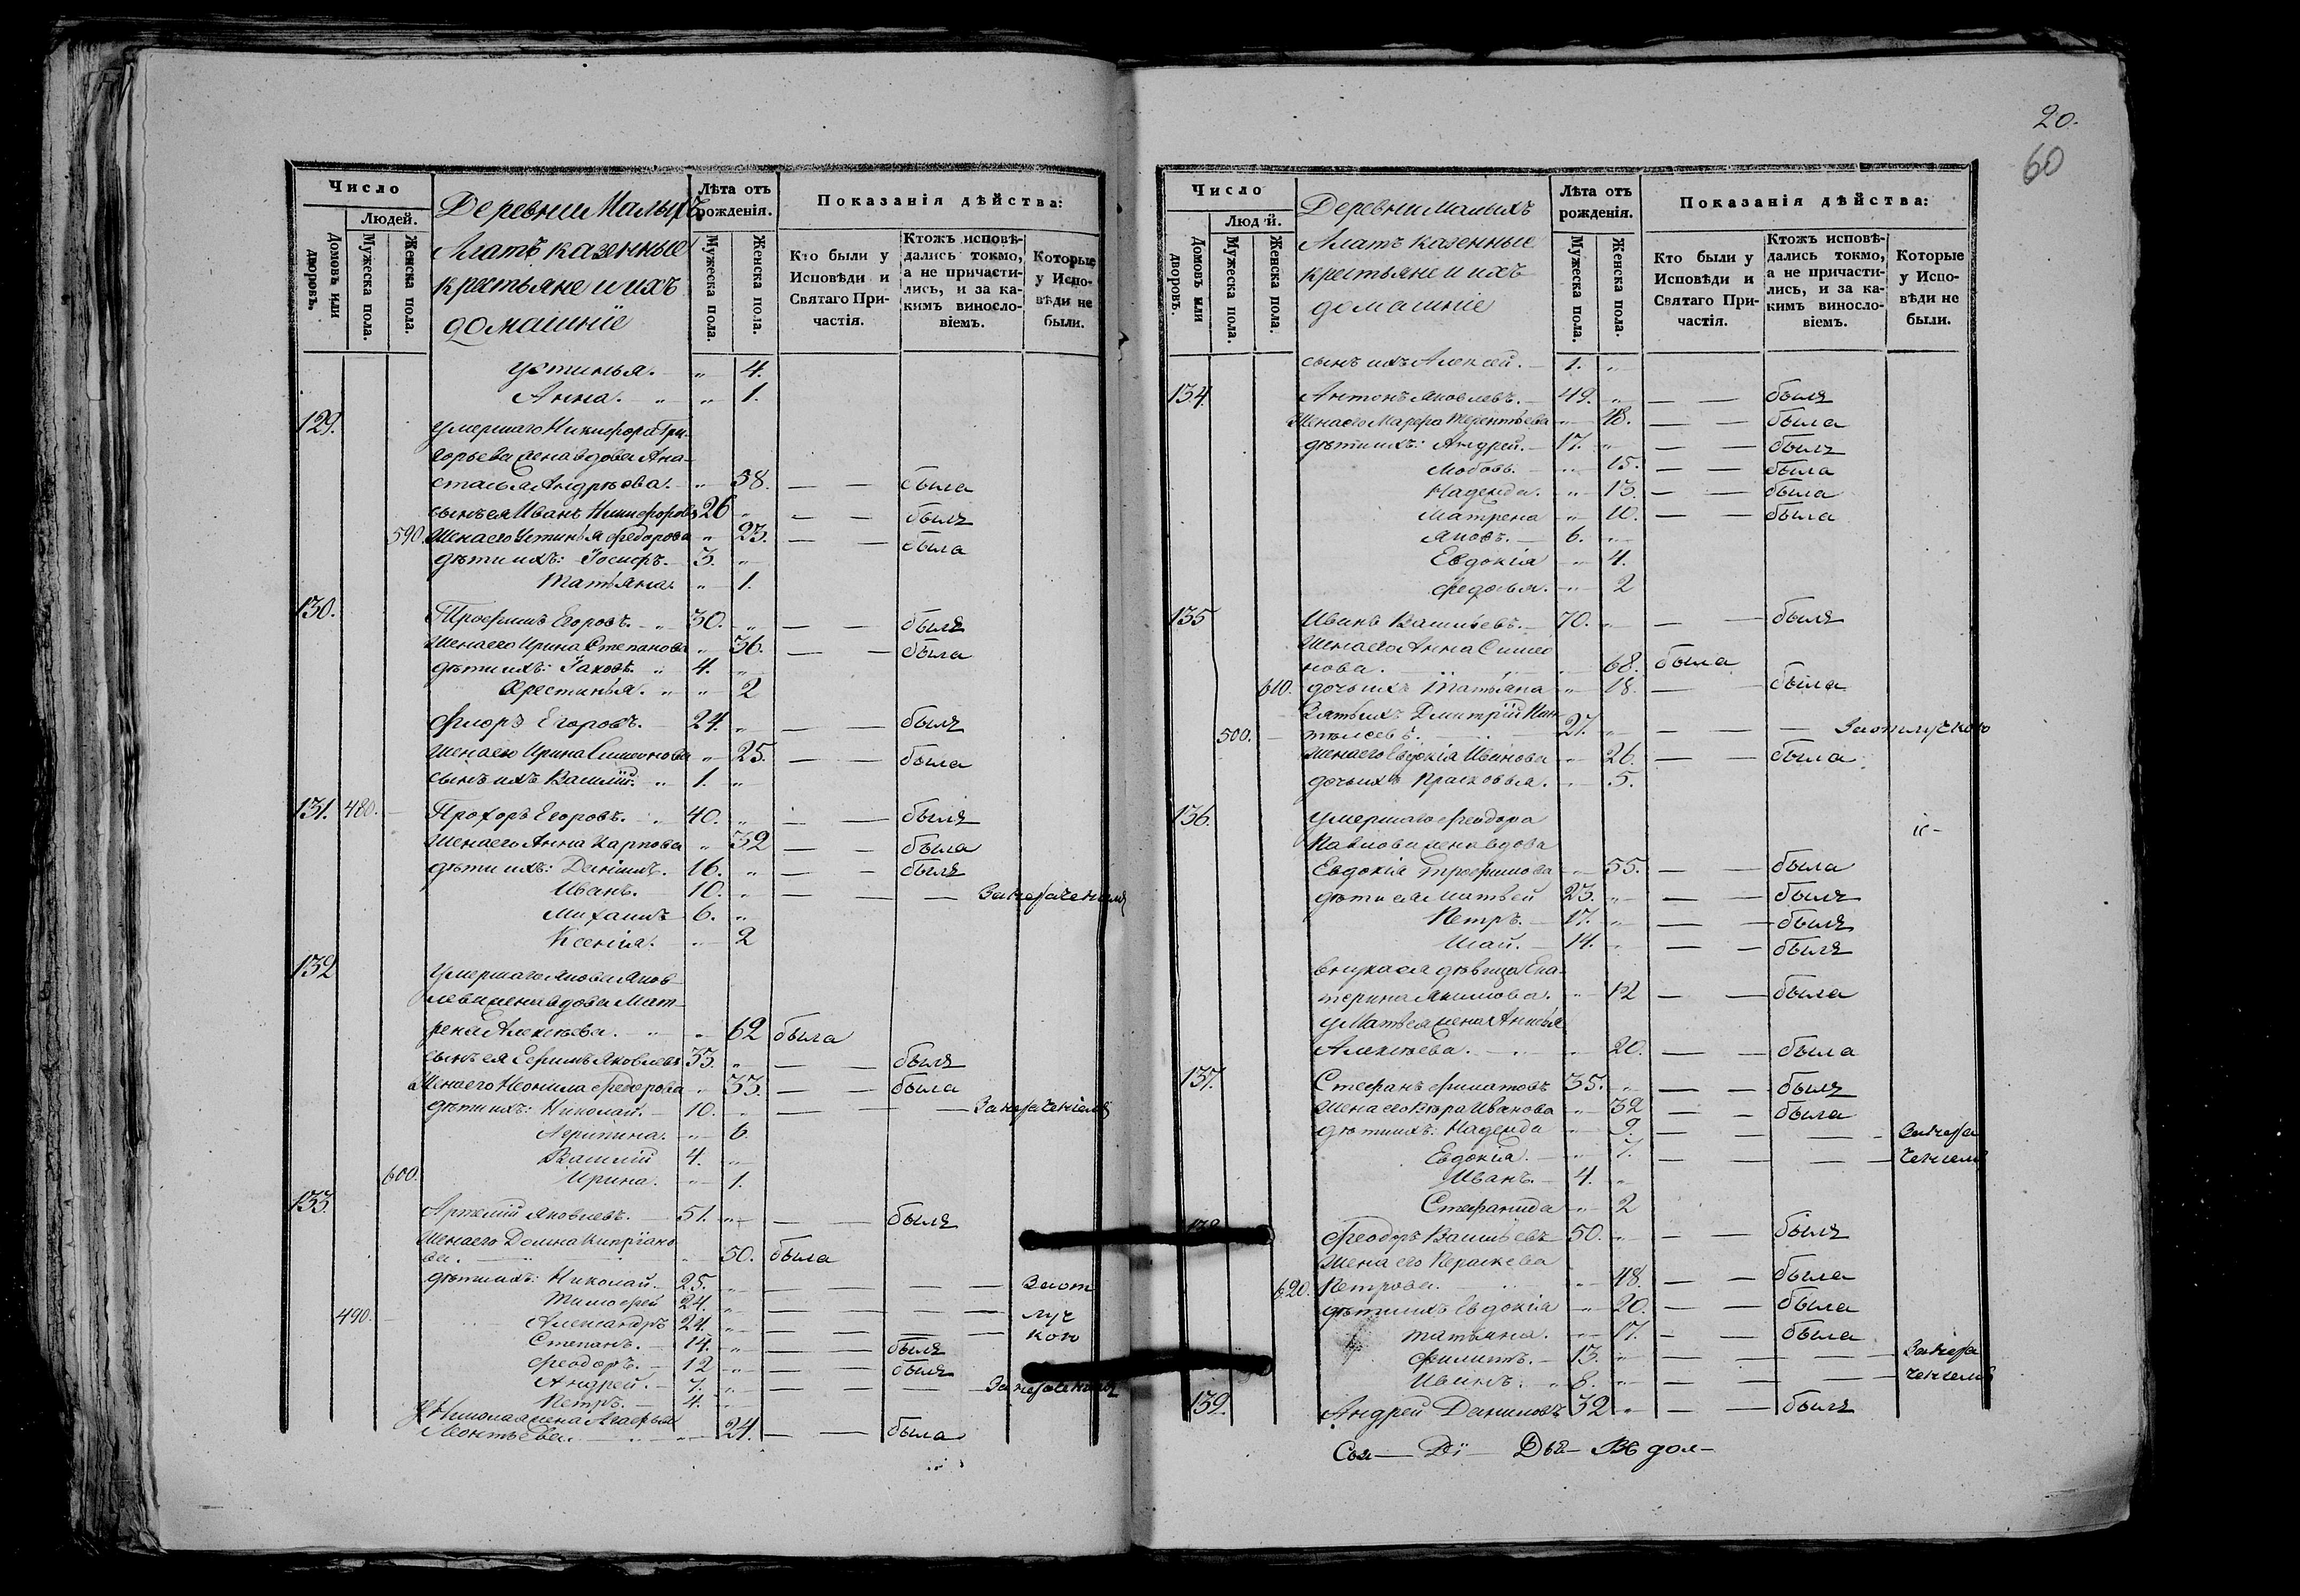 Число
Людей.
Домовъ или дворовъ.
Мужеска пола.
Женска пола.
Деревни Малыхъ
Алатъ казенные
крестьяне и ихъ
домашніе
Лѣта отъ рожденія.
Мужеска пола.
Женска пола.
Показанія дѣйства:
Кто были у Исповѣди и Святаго Причастія.
Ктожъ исповѣдались токмо, а не причастились, и за какимъ винословіемъ.
Которые у Исповѣди не были.
Устинья. „ 4.
Анна. „ „ 1.
129. Умершаго Никифора Гри-
горьева жена вдова Ана-
стасья Андрѣева. „ 58. — — была
сынъ ея Иванъ Никифоровъ 26 „ — — былъ
590. Жена его Устинья Федорова „ 23. — — была
дѣти ихъ: Іосифъ. 3. „
Татьяна. „ 1.
130. Трофимъ Егоровъ. „ 30. „ — — былъ
Жена его Ирина Степанова „ 36. — — была
дѣти ихъ: Іаковъ. „ 4. „
Хрестинья. „ „ 2
Флоръ Егоровъ. 24. „ — — былъ
Жена его Ирина Симеонова „ 25. — — была
сынъ ихъ Василій. „ 1. „
131. 480. — Прохоръ Егоровъ. „ 40. „ — — былъ
Жена его Анна Карпова „ 32 — — была
дѣти ихъ: Даніилъ. 16. „ — — былъ
Иванъ. 10. „ — — — За нерачениемъ
Михаилъ 6. „
Ксенія. „ 2
132 Умершаго Якова Яков-
лева жена вдова Мат-
рена Алексѣева. „ „ 62 была
сынъ ея Ефимъ Яковлевъ 33. „ — — былъ
Жена его Неонила Федорова „ 33. — — была
дѣти ихъ: Николай. 10. „ — — — За нерачениемъ
Агрипина. „ 6.
Василій 4. „
600. Ирина. „ 1.
133. Артемій Яковлевъ. 51. „ — — былъ
Жена его Домна Кипріано-
ва. „ 50. была
дѣти ихъ: Николай. 25. „ — — — — За от
Тимофей 24. „ — — — — луч
490. — Александръ 24. „ — — — — кою
Степанъ. 14. „ — — былъ
Феодоръ. 12 „ — — былъ
Андрей. 7. „ — — — За нерачениемъ
Петръ. 4. „
У Николая жена Агафья
Леонтьева. „ 24. — — была
20.
60
Число
Люд й.
Домовъ или дворовъ.
Мужеска пола.
Женска пола.
Деревни Малыхъ
Алатъ казенные
крестьяне и ихъ
домашніе
Лѣта отъ рожденія.
Мужеска пола.
Женска пола.
Показанія дѣйства:
Кто были у Исповѣди и Святаго Причастія.
Ктожъ исповѣдались токмо, а не причастились, и за какимъ винословіемъ.
Которые у Исповѣди не были.
сынъ ихъ Алексей. 1. „
134. Антонъ Яковлевъ. 49. „ — — былъ
Жена его Марфа Терентьева „ 48. — — была
дѣти ихъ: Андрей. 17. „ — — былъ
Любовь. „ 15. — — была
Надежда. „ 13. — — была
Матрена „ 10. — — была
Яковъ. 6. „
Евдокія „ 4.
Федосья. „ 2
135 Иванъ Васильевъ. 70. „ — — былъ
Жена его Анна Симео
нова. „ 68. была
610. дочь ихъ Татьяна „ 18. — — была
Зять ихъ Дмитрій Пан-
500. — тѣлеевъ. 27. „ — — — За отлучкою
Жена его Евдокія Иванова „ 26. — — была
дочь ихъ Прасковья. „ 5.
136. Умершаго Феодора
Павлова жена вдова
Евдокія Трофимова „ 55. — — была
дѣти ея Матвей 23. „ — — былъ
Петръ. 17. „ — — былъ
14. „ — — былъ
внука ея дѣвица Ека-
терина Якимова. „ 12 — — была
У Матвея жена Анисья
Алексѣева. „ 20. — — была
137. Стефанъ Филатовъ 35. „ — — былъ
Жена его Вѣра Иванова „ 32 — — была
дѣти ихъ: Надежда „ 9. — — — — За нера
Евдокія. „ 7. — — — — чениемъ
Иванъ. 4. „
Стефанида „ 2
138. Феодоръ Васильевъ 50. „ — — былъ
Жена его Параскева
620. Петрова. „ 48. — — была
дѣти ихъ Евдокія „ 20. — — была
Татьяна. „ 17. — — была
Филиппъ. 13. „ — — — — За нера
Иванъ. „ 8. „ — — — — чениемъ
139. Андрей Даниловъ 32 „ — — былъ